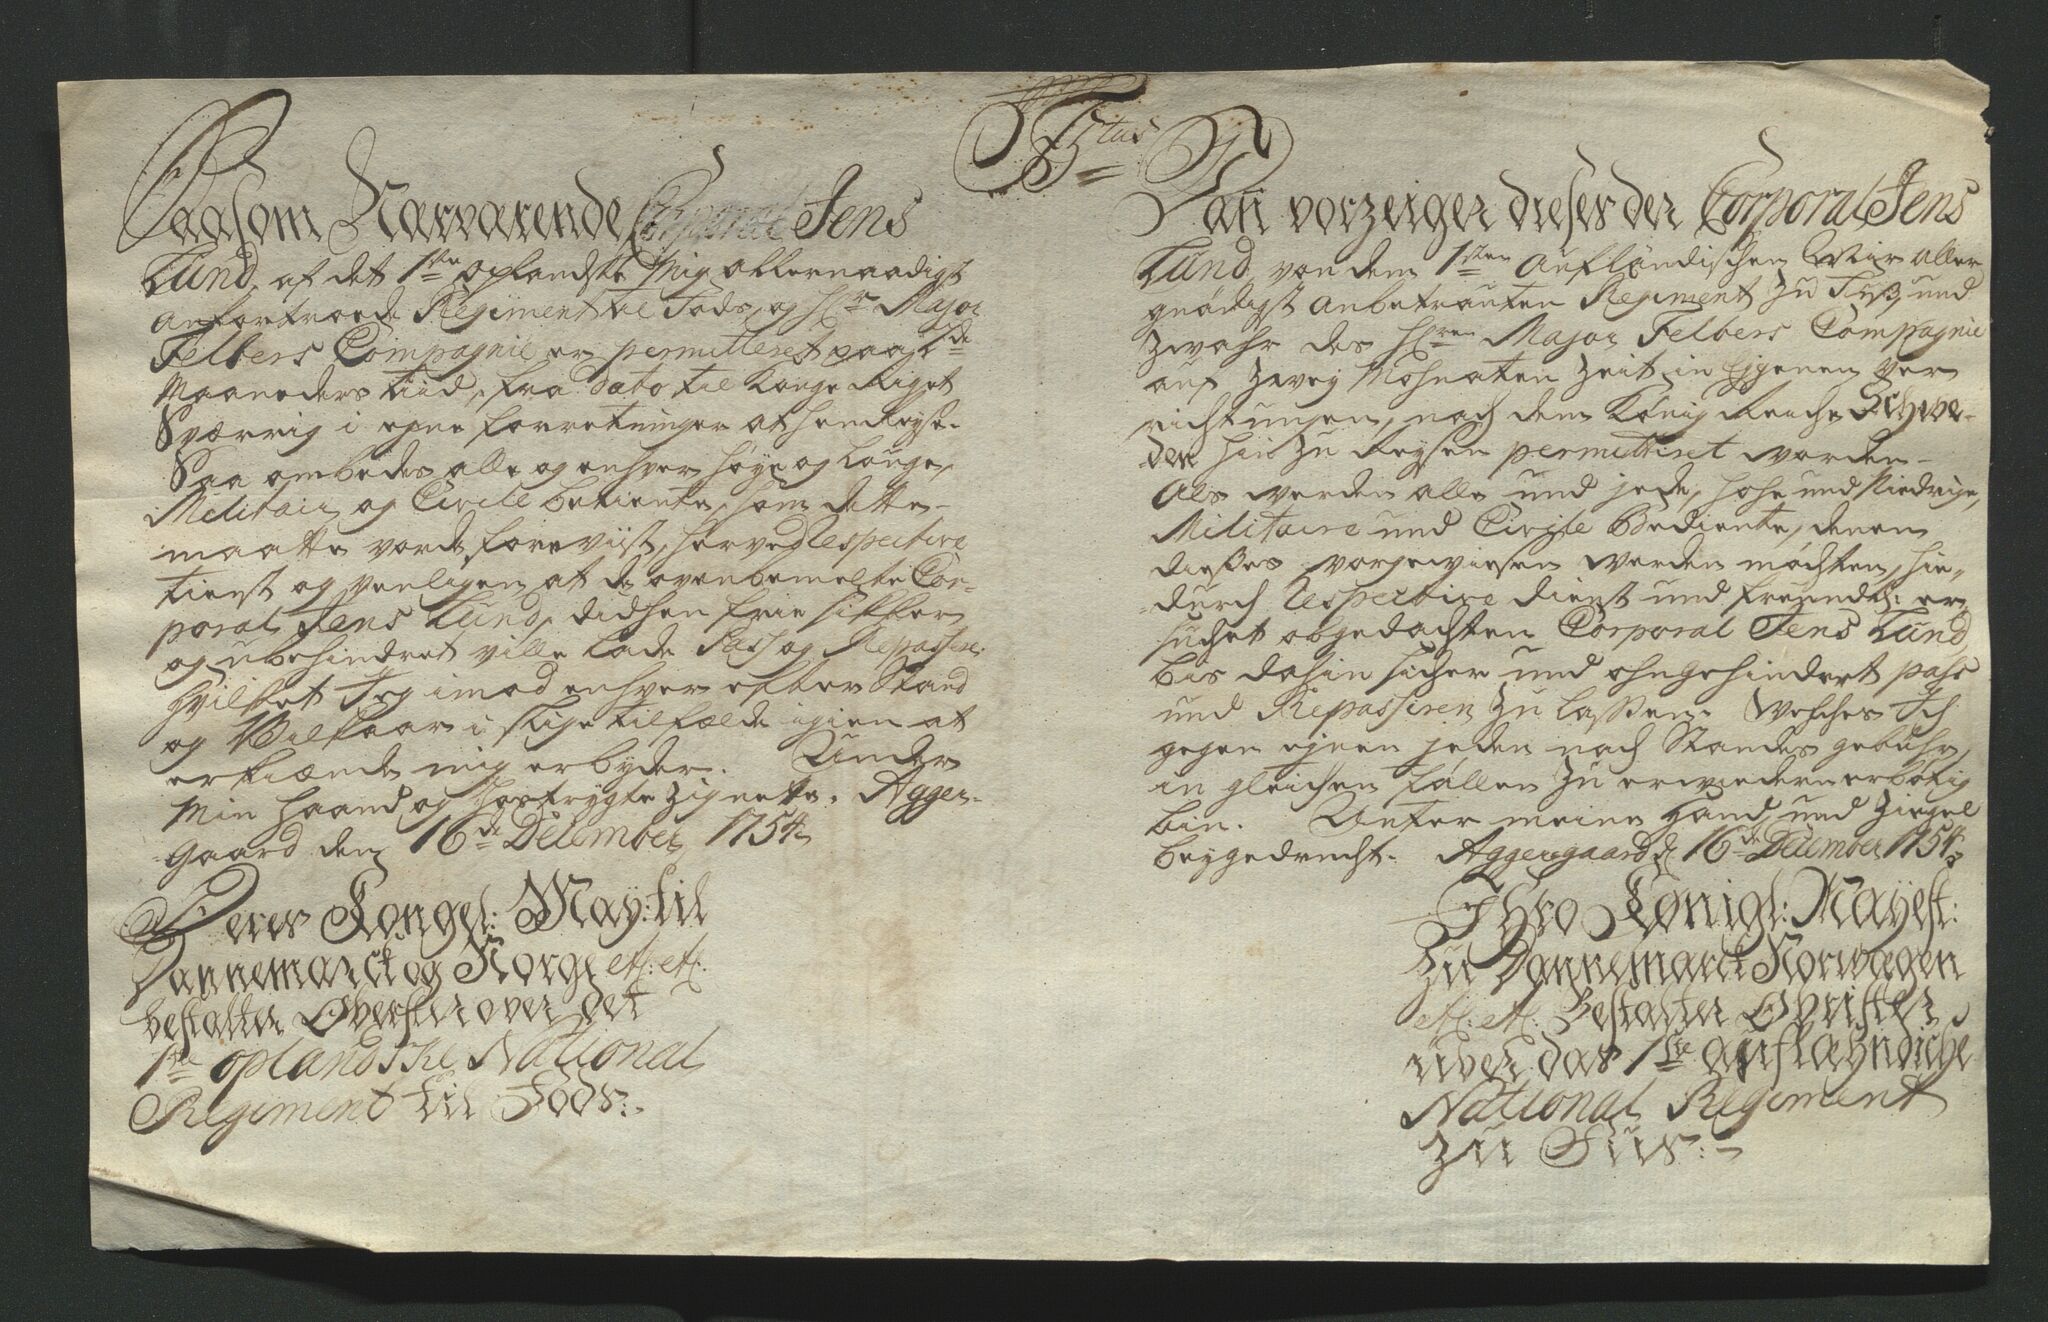 Titus
Saasom Nærværende Corporal Jens
Lund, af det 1ste oplandske Mig allernaadigst
anfortroede Regiment til Fods, og Hr Major
Felbers Compagnie er permitteret paa 2de
Maaneders tiid, fra dato til Konge Riget
Sværrig i egne forretninger at henreyse.
Saa ombedes alle og enhver høye og Lauge,
Militair og Civile betiente, som dette
maatte vorde foreviist, herved Respective
tienst og venligen at de ovenbemelte Cor-
poral Jens Lund, didhen frie sikker
og ubehindret ville lade Pass og Repassere.
hvilket Jeg imod enhver efter Stand
og Vilkaar i slige tilfælde igien at
erkiænde mig erbyder. Under
Min haand og hostrygte Zignette. Agger-
gaard den 16de December 1754
Deres Kongel: May: til
Dannemarck og Norge etc: etc:
bestalter Øberster over det
1ste oplandske National
Regiment til Fods:
Dan vorzeiger dieses der Corporal Jens
Lund, von dem 1sten aufländischen Mir aller
gnädigst anbetrauten Regiment zu Fuß, und
zwahr des Hren Major Felbers Compagnie
auf Zwey Mohnaten Zeit in Eygenen Ver
richtungen, nach dem König Reiche Schwe-
den hin zu Reysen permittiret worden
Als werden alle und jede, hohe und Niedrige,
Militaire und Civile Bediente, denen
dießes vorgewiesen werden möchten, hie-
durch Respective dienst und freundl: er
suchet obgedachten Corporal Jens Lund,
bis dahin sicher und ohngehindert pass
und Repassiren zu laßen. Welches Ich
gegen eynen jeden nach Standes gebühr,
in gleichen fällen zu erwiedern erbötig
bin. Unter meine Hand, und Ziegel
beygedrucht. Aggergaard d 16de December 1754
Ihro Königl: Mayest:
zu Dannemarck Norwægen
etc: etc: Bestalter Obrister
uber das 1ste auflæhndiche
National Regiment
zu Fus: